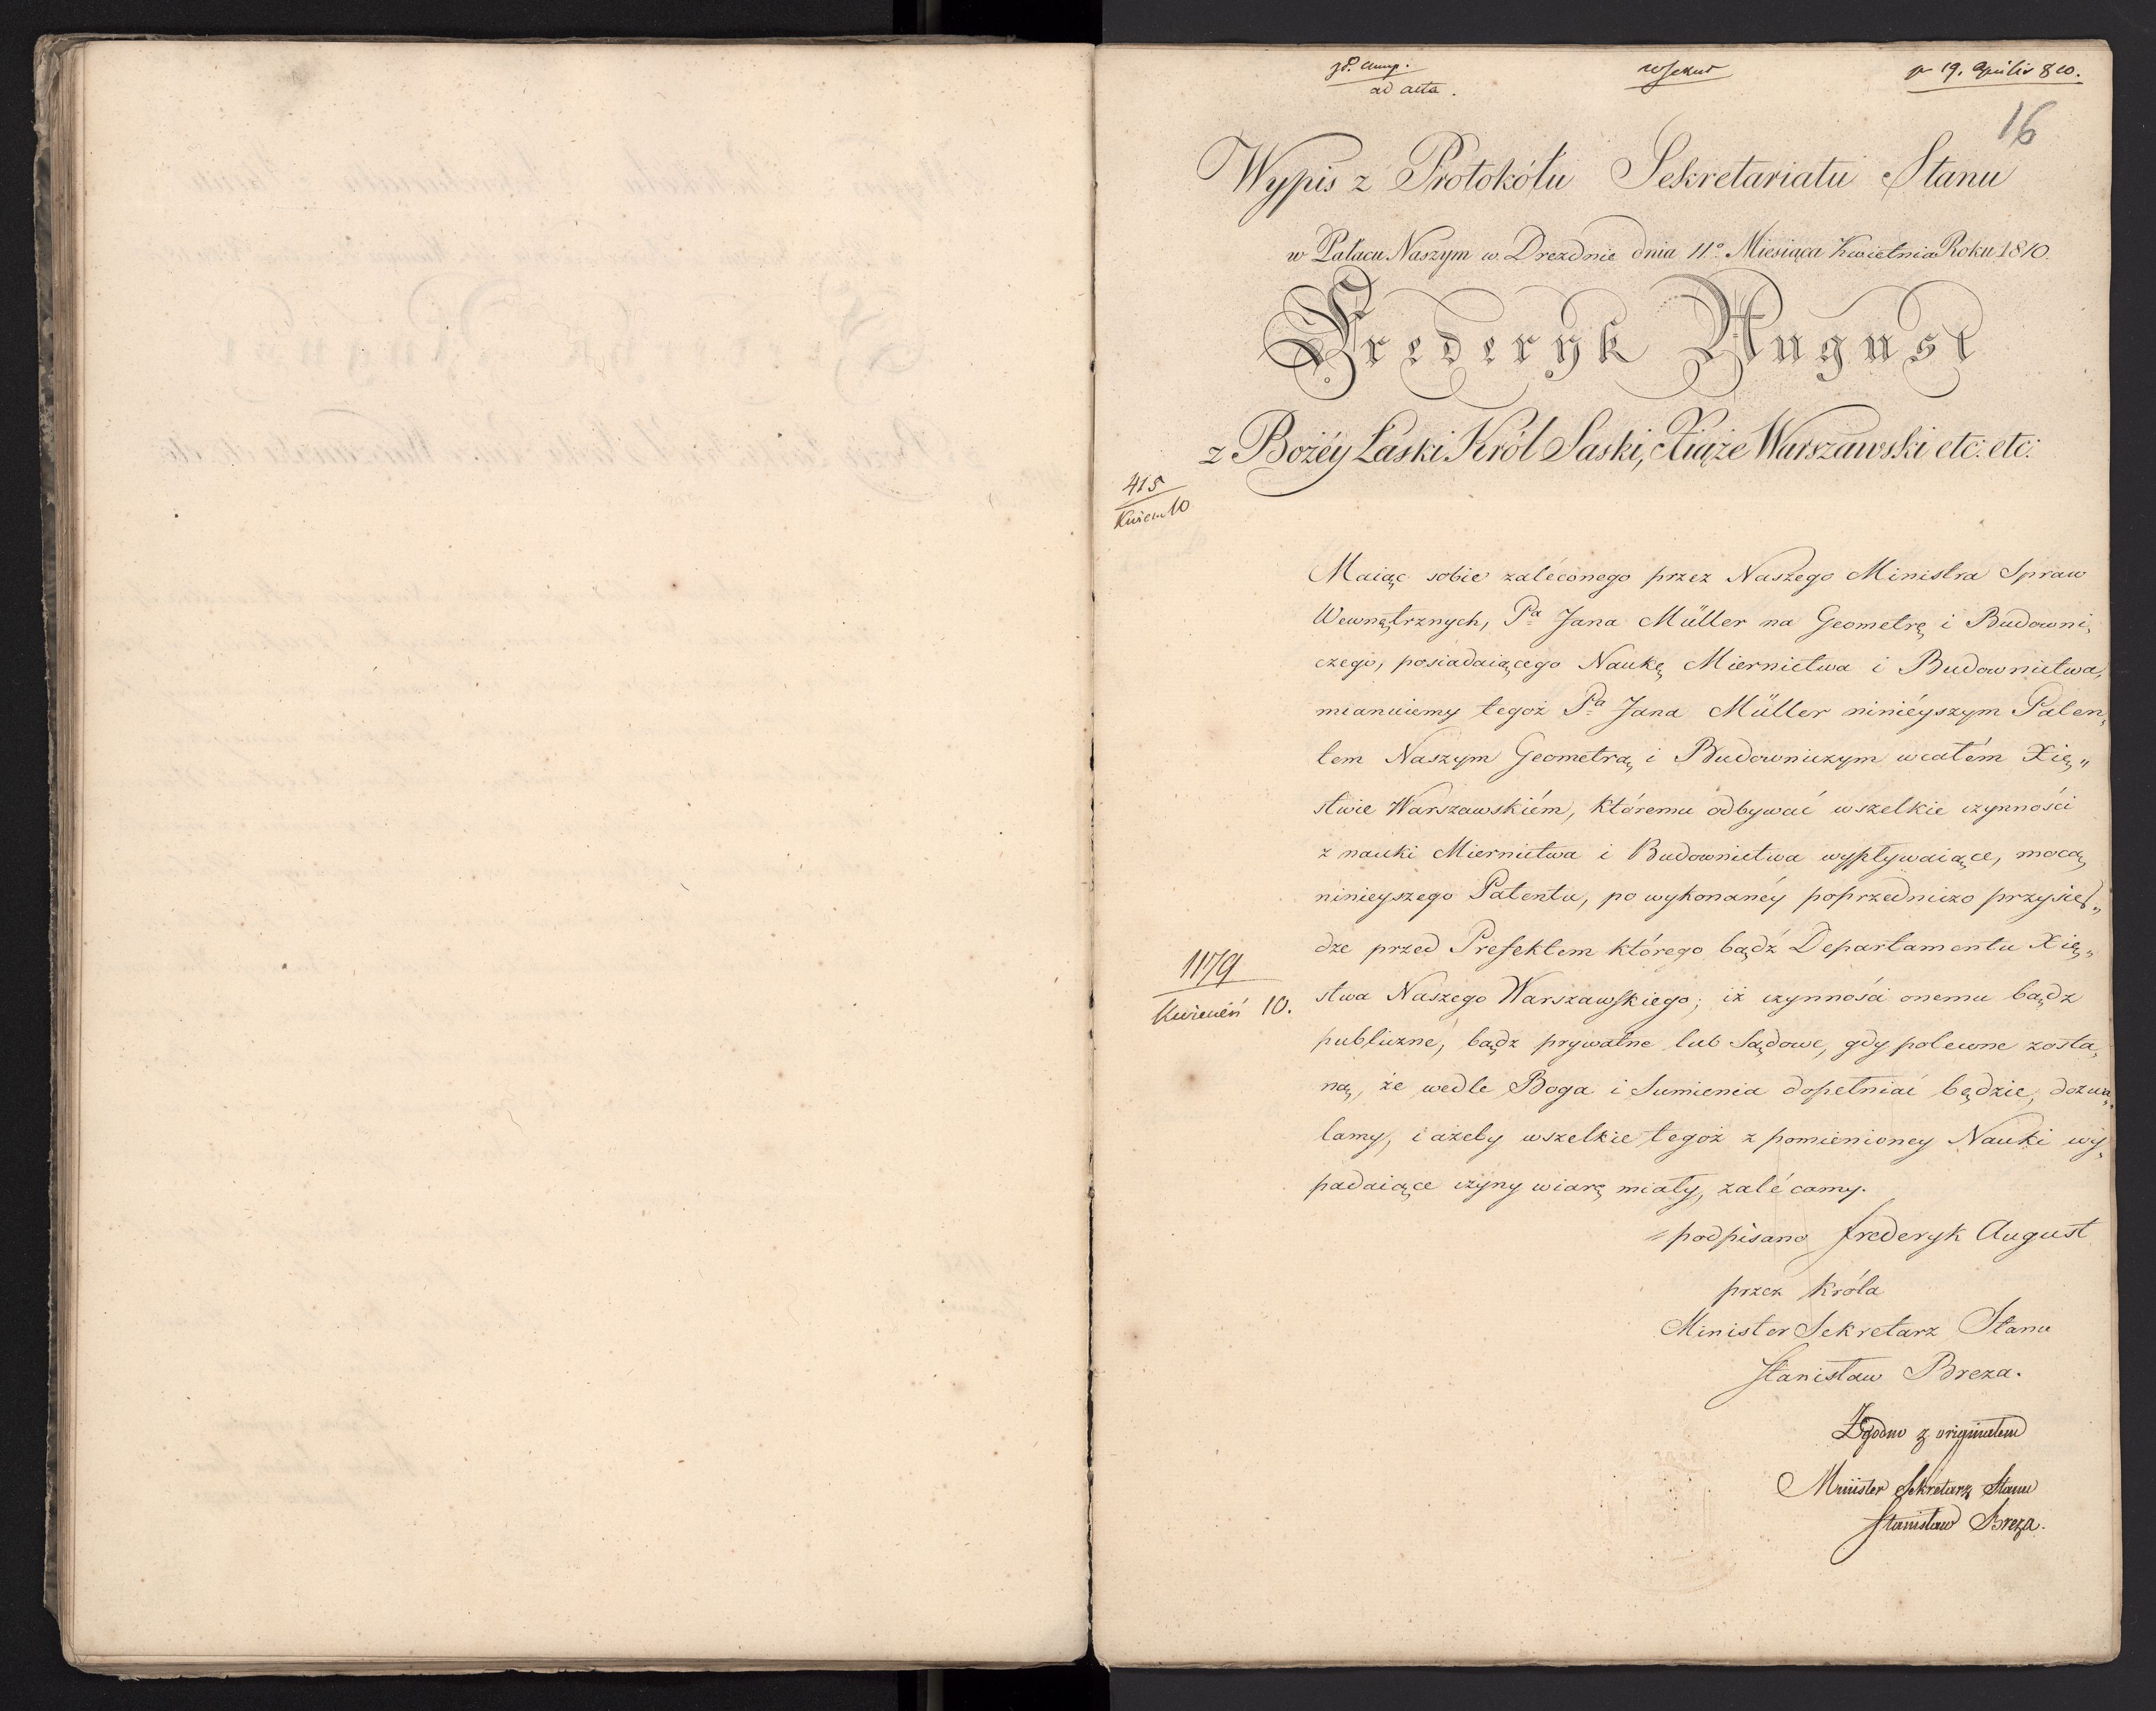 ad acta.
pr 19. Aprilis 810.
16
Wypis z Protokółu Sekretariatu Stanu
w Pałacu Naszym w Dreznie dnia 11º Miesiąca Kwietnia Roku 1810.
Frederyk August
z Bożéy Łaski Król Saski, Xiąże Warszawski etc: etc:
415
Kwiec 10
Maiąc sobie zaléconego przez Naszego Ministra Spraw
Wewnętrznych, Pa Jana Müller na Geometrę i Budowni„
czego, posiadaiącego Naukę Miernictwa i Budownictwa,
mianuiemy tegoż Pa Jana Müller ninieyszym Paten„
tem Naszym Geometrą i Budowniczym wcałém Xię„
stwie Warszawskiém, któremu odbywać wszelkie czynności
z nauki Miernictwa i Budownictwa wypływaiące, mocą
ninieyszego Patentu, po wykonanéy poprzedniczo przysię„
dze przed Prefektem którego bądź Departamentu Xię„
1179
Kwiecień 10.
stwa Naszego Warszawskiego; iż czynności onemu bądz
publiczne, bądz prywatne lub Sądowe, gdy polecone zosta„
ną, że wedle Boga i Sumienia dopełniać będzie, dozwa„
lamy, i ażeby wszelkie tegoż z pomienioney Nauki wy„
padaiące czyny wiarę miały, zalécamy.
podpisano Frederyk August
przez Króla
Minister Sekretarz Stanu
Stanisław Breza.
Zgodno z originałem
Minister Sekretarz Stanu
Stanisław Breza.